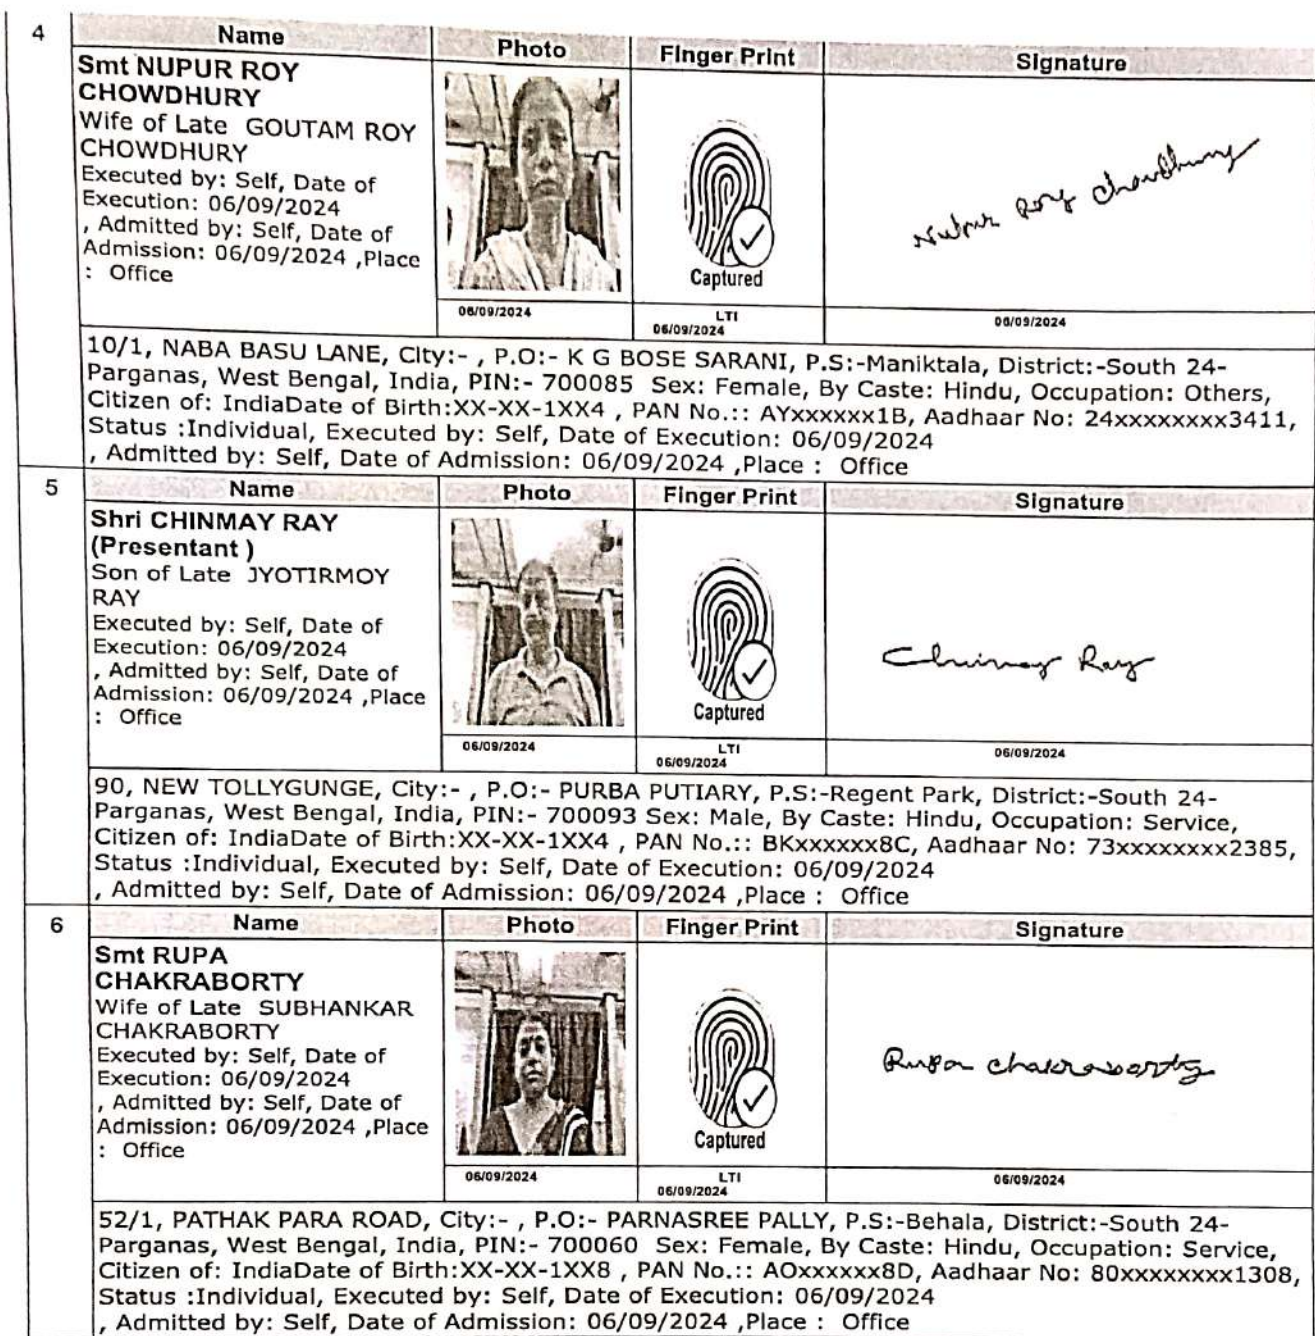 4
Name Photo Finger Print Signature
Smt NUPUR ROY
CHOWDHURY
Wife of Late GOUTAM ROY
CHOWDHURY
Executed by: Self, Date of
Execution: 06/09/2024
, Admitted by: Self, Date of
Admission: 06/09/2024 ,Place
: Office
Captured
Nupur Roy Chowdhury
06/09/2024 LTI 06/09/2024
06/09/2024
10/1, NABA BASU LANE, City:- , P.O:- K G BOSE SARANI, P.S:-Maniktala, District:-South 24-
Parganas, West Bengal, India, PIN:- 700085 Sex: Female, By Caste: Hindu, Occupation: Others,
Citizen of: IndiaDate of Birth:XX-XX-1XX4 , PAN No.:: AYxxxxxx1B, Aadhaar No: 24xxxxxxxx3411,
Status :Individual, Executed by: Self, Date of Execution: 06/09/2024
, Admitted by: Self, Date of Admission: 06/09/2024 ,Place : Office
5
Name Photo Finger Print Signature
Shri CHINMAY RAY
(Presentant )
Son of Late JYOTIRMOY
RAY
Executed by: Self, Date of
Execution: 06/09/2024
, Admitted by: Self, Date of
Admission: 06/09/2024 ,Place
: Office
Captured
Chinmay Ray
06/09/2024 LTI 06/09/2024
06/09/2024
90, NEW TOLLYGUNGE, City:- , P.O:- PURBA PUTIARY, P.S:-Regent Park, District:-South 24-
Parganas, West Bengal, India, PIN:- 700093 Sex: Male, By Caste: Hindu, Occupation: Service,
Citizen of: IndiaDate of Birth:XX-XX-1XX4 , PAN No.:: BKxxxxxx8C, Aadhaar No: 73xxxxxxxx2385,
Status :Individual, Executed by: Self, Date of Execution: 06/09/2024
, Admitted by: Self, Date of Admission: 06/09/2024 ,Place : Office
6
Name Photo Finger Print Signature
Smt RUPA
CHAKRABORTY
Wife of Late SUBHANKAR
CHAKRABORTY
Executed by: Self, Date of
Execution: 06/09/2024
, Admitted by: Self, Date of
Admission: 06/09/2024 ,Place
: Office
Captured
Rupa Chakraborty
06/09/2024 LTI 06/09/2024
06/09/2024
52/1, PATHAK PARA ROAD, City:- , P.O:- PARNASREE PALLY, P.S:-Behala, District:-South 24-
Parganas, West Bengal, India, PIN:- 700060 Sex: Female, By Caste: Hindu, Occupation: Service,
Citizen of: IndiaDate of Birth:XX-XX-1XX8 , PAN No.:: AOxxxxxx8D, Aadhaar No: 80xxxxxxxx1308,
Status :Individual, Executed by: Self, Date of Execution: 06/09/2024
, Admitted by: Self, Date of Admission: 06/09/2024 ,Place : Office